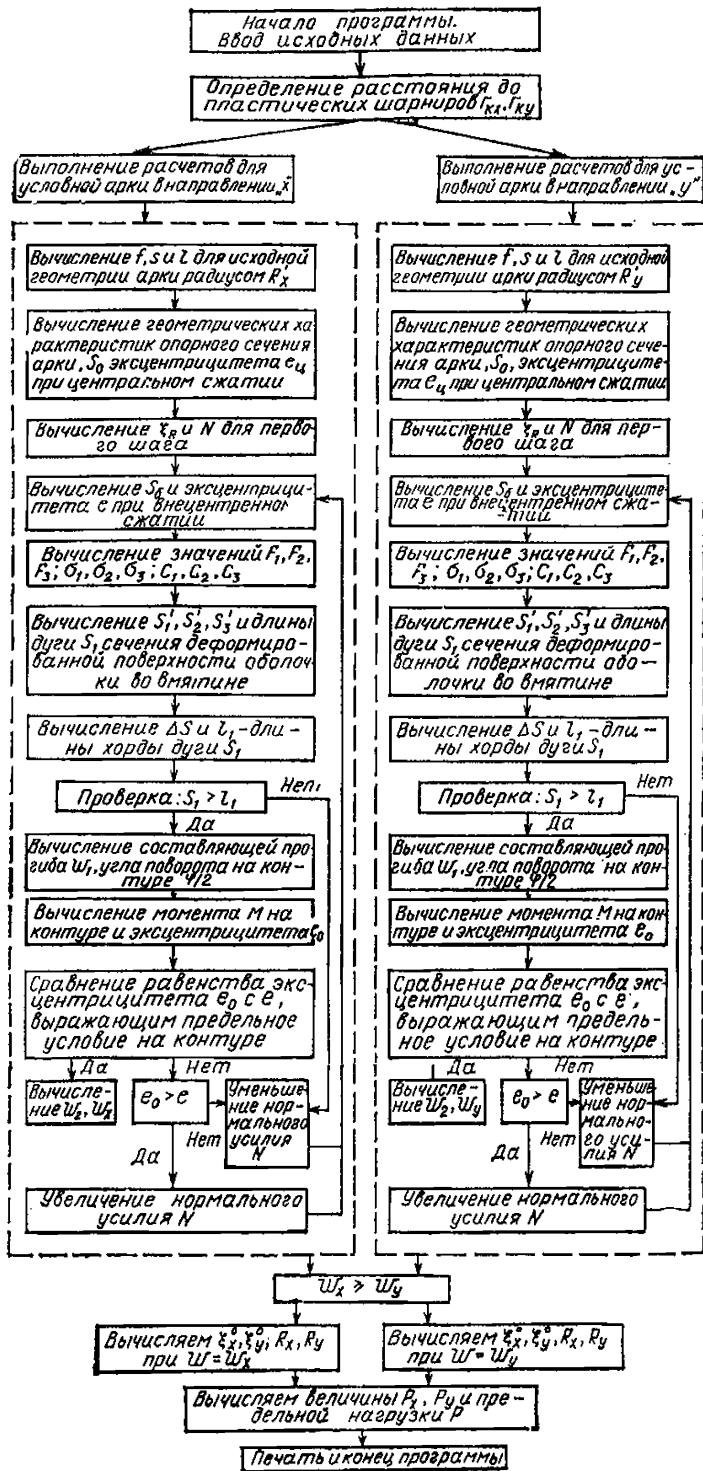 Начало программы.
Ввод исходных данных
Определение расстояния до
пластических шарниров r_кх, r_ку
Выполнение расчетов для
условной арки в направлении „x"
Вычисление f, s и l для исходной
геометрии арки радиусом R'x
Вычисление геометрических ха-
рактеристик опорного сечения
арки, S₀ эксцентрицитета eц
при центральном сжатии
Вычисление ξR и N для перво-
го шага
Вычисление Sб и эксцентрици-
тета e при внецентренном
сжатии
Вычисление значений F₁, F₂,
F₃; σ₁, σ₂, σ₃; C₁, C₂, C₃
Вычисление S₁', S₂', S₃' и длины
дуги S₁ сечения деформиро-
ванной поверхности оболоч-
ки во вмятине
Вычисление ΔS и l₁ – дли-
ны хорды дуги S₁
Проверка: S₁ > l₁
Нет
Да
Вычисление составляющей про-
гиба W₁, угла поворота на кон-
туре φ/2
Вычисление момента M на
контуре и эксцентрицитета e₀
Сравнение равенства экс-
центрицитета e₀ с e,
выражающим предельное
условие на контуре
Да
Нет
Вычисле-
ние W₂, Wx
e₀ > e
Уменьше-
ние нор-
мального
усилия
N
Нет
Да
Увеличение нормального
усилия N
Выполнение расчетов для ус-
ловной арки в направлении „y"
Вычисление f, s и l для исходной
геометрии арки радиусом R'y
Вычисление геометрических
характеристик опорного сече-
ния арки, S₀, эксцентриците-
та eц при центральном сжатии
Вычисление ξR и N для пер-
вого шага
Вычисление Sб и эксцентриците-
та e при внецентренном сжа-
тии
Вычисление значений F₁, F₂,
F₃; σ₁, σ₂, σ₃; C₁, C₂, C₃
Вычисление S₁', S₂', S₃' и длины
дуги S₁ сечения деформиро-
ванной поверхности обо-
лочки во вмятине
Вычисление ΔS и l₁ – дли-
ны хорды дуги S₁
Проверка: S₁ > l₁
Нет
Да
Вычисление составляющей про-
гиба W₁, угла поворота на кон-
туре φ/2
Вычисление момента M на кон-
туре и эксцентрицитета e₀
Сравнение равенства экс-
центрицитета e₀ с e,
выражающим предель-
ное условие на контуре
Да
Нет
Вычисле-
ние W₂, Wy
e₀ > e
Уменьше-
ние нор-
мально-
го уси-
лия N
Нет
Да
Увеличение нормального
усилия N
Wx ⩾ Wy
Вычисляем ξx°, ξy°, Rx, Ry
при W = Wx
Вычисляем ξx°, ξy°, Rx, Ry
при W = Wy
Вычисляем величины Px, Py и пре-
дельной нагрузки P
Печать и конец программы